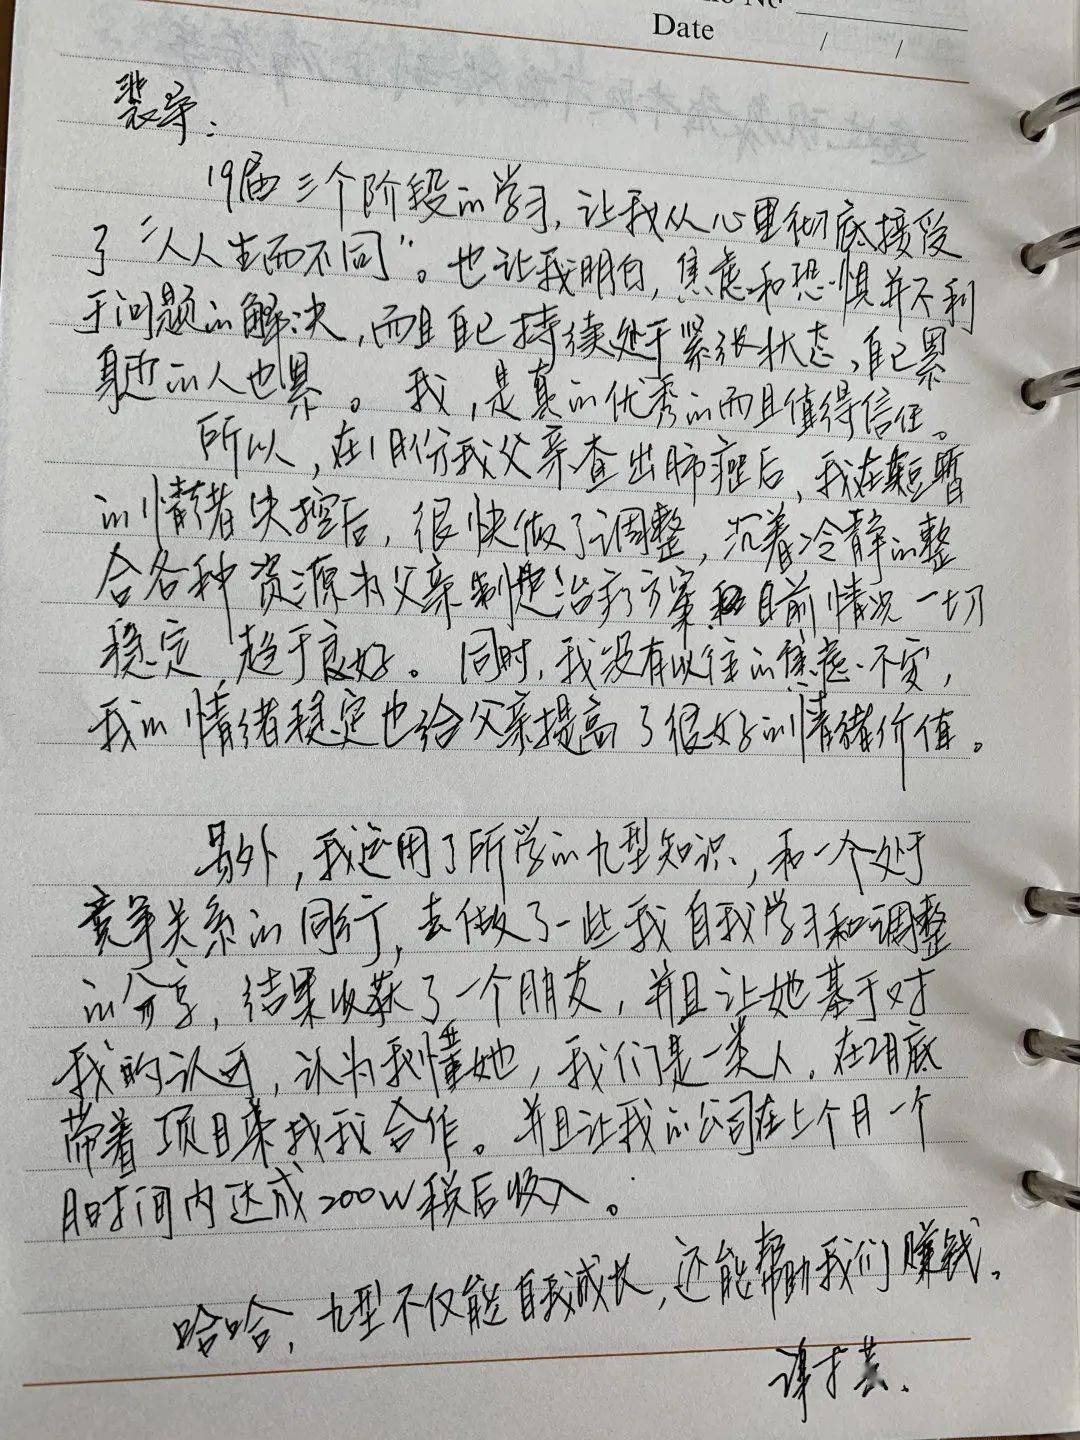 Date
/ /
裴宇：
19届三个阶段的学习，让我从心里彻底接受
了“人人生而不同”。也让我明白，焦虑和恐惧并不利
于问题的解决，而且自己持续处于紧张状态，自己累
身边的人也累。我，是真的优秀的而且值得信任。
所以，在1月份我父亲查出肺癌后，我在短暂
的情绪失控后，很快做了调整，沉着冷静的整
合各种资源为父亲制定治疗方案 目前情况一切
稳定，趋于良好。同时，我没有以往的焦虑、不安，
我的情绪稳定也给父亲提高了很好的情绪价值。
另外，我运用了所学的九型知识，和一个处于
竞争关系的同行，去做了一些我自我学习和调整
的分享，结果收获了一个朋友，并且让她基于对
我的认可，认为我懂她，我们是一类人，在2月底
带着项目来找我合作。并且让我的公司在上个月一个
月时间内达成200W税后收入。
哈哈，九型不仅能自我成长，还能帮助我们赚钱。
谭才芸.